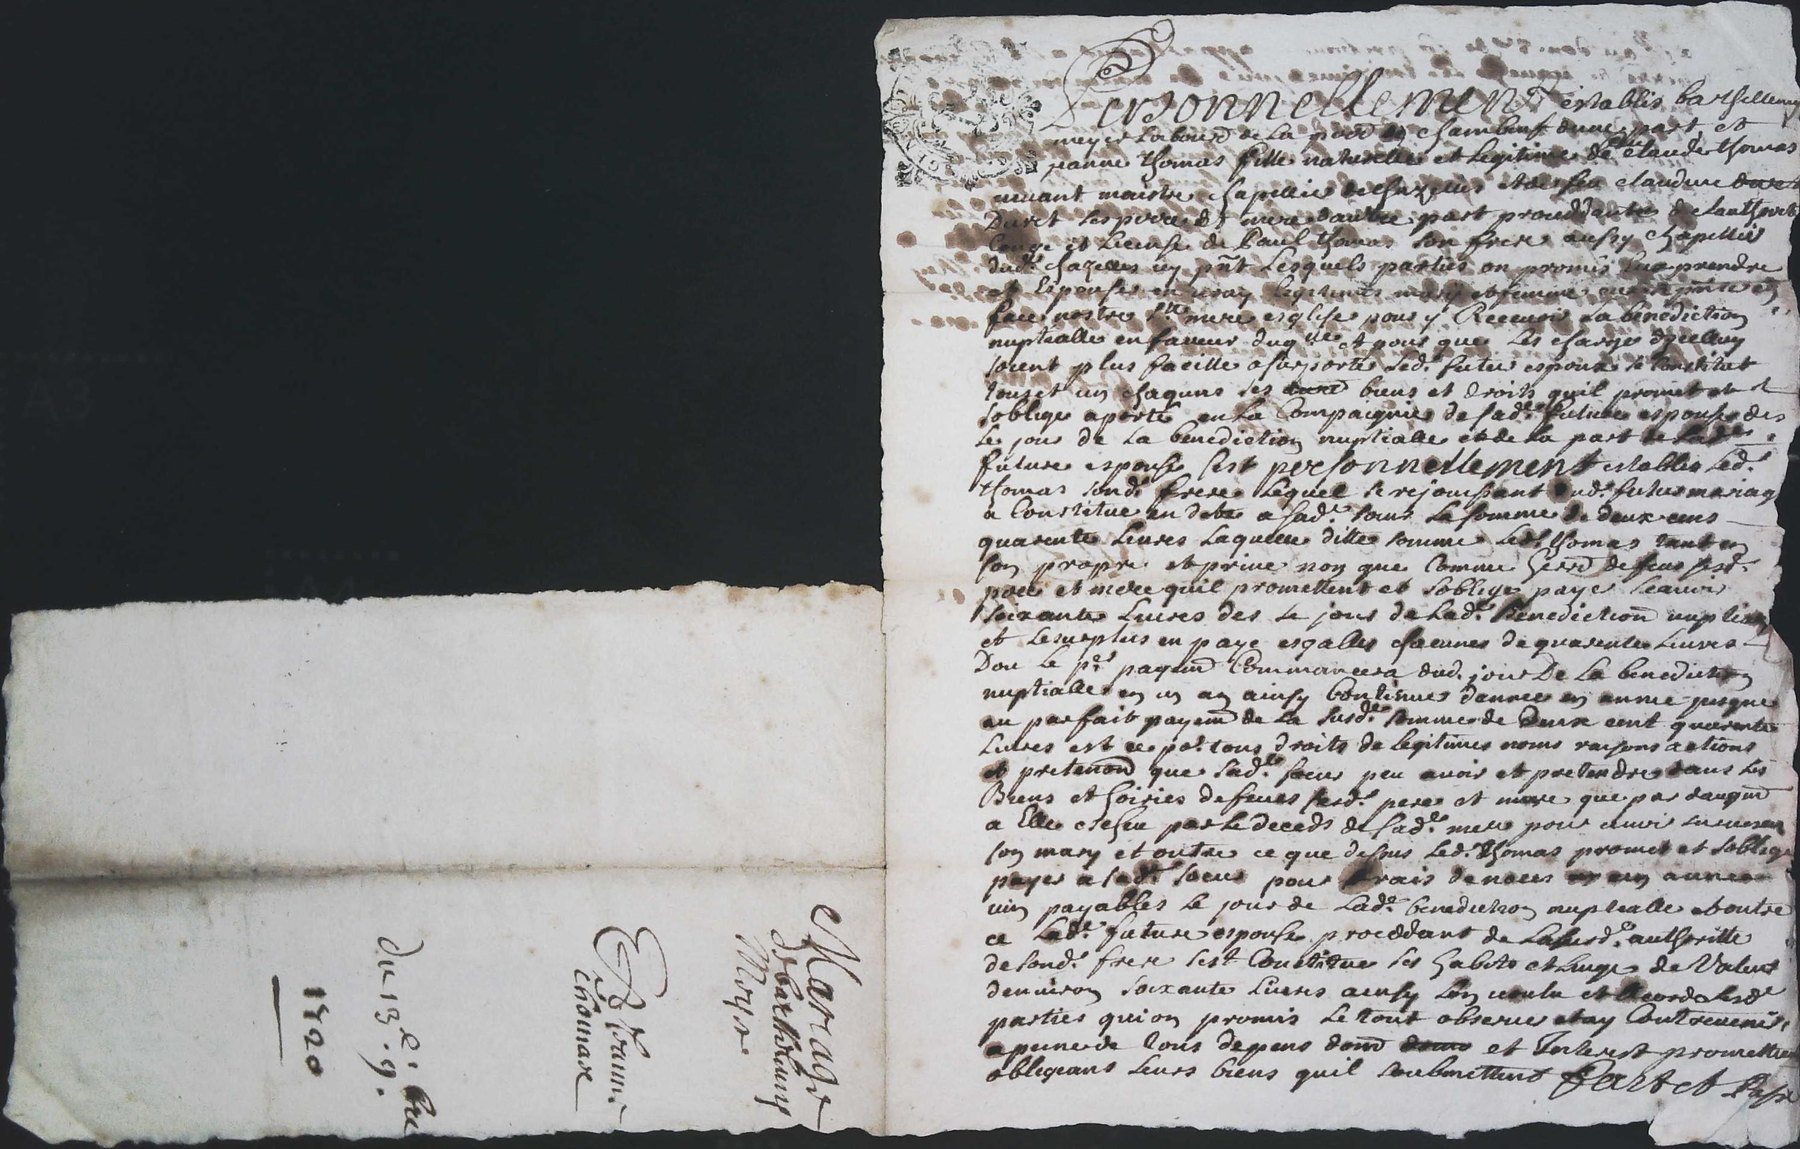 Personnellement establis barthellemy
meyer Labour de La parr de chambeuf dune part et
jeanne thomas fille naturelle et Legitime de claude thomas
vivant maistre chapellier de chazelles et de feu claudine
Duret ses pere et mere dautre part proceddante de Lauthorite
Conge et License de Paul thomas son frere aussy chapellier
dud. chazelles icy pnt Lesquels parties on promis sur prendre
et Espouser en vray legitimes mary et femme
face nostre Ste mere esglise pour y Recevoir la benediction
nuptialle en faveur duq et pour que Les charges dycelluy
soient plus facille a suporter Led. futur espoux se Constitue
tous et un chaquns ses biens et droits quil promet et
soblige aporter en La Compaignie de Sad. future espouse des
Le jour de La benediction nuptialle et de La part de Lad.
future espouse sest personnellement establis Led.
thomas Sond. frere Lequel se rejouissant dud. futur mariage
a Constitue en dote a Sad. soeur La somme de deux cens
quarente Livres Laquelle ditte somme Led. thomas tant en
son propre et prive non que Comme herr de feus sesd.
pere et mere quil promettent et soblige payer scavoir
soixante Livres des Le jour de Lad. Benediction nuptialle
et Lesurplus en paye esgalles chacunes de quarente Livres
Don Le pr. payemt Commancera dud. jour De La benediction
nuptialle en un an ainsy Continuer dannee en annee jusque
au parfait payemt de La susd. somme de Deux cent quarente
Livres est ce pr. tous droits de legitimes noms raisons actions
et pretenon que Sad. soeur peu avoir et pretendre dans Les
Biens et hoiries de feues sesd. pere et mere que par daugmt
a Elle escheu par Le deceds de Sad. mere pour avoir survescu
son mary et outre ce que dessus Led. thomas promet et soblige
payer a Sad. soeur pour frais de noces un annee
vin payables Le jour de Lad. benediction nuptialle et outre
ce Lad. future espouse proceddant de La susd. authoritte
de Sond. frere sest Constitue ses habits et Linge de Valeur
denviron soixante Livres ainsy Lon voulu et Acorde Lesd.
parties qui on promis Le tout observer et ny Contrevenir
a peine de tous depens dom et Interest promettre
obligeans Leurs biens quil soubmettent fait et Passe
Mariage
De barthelemy
Meyer
Et Jeanne
thomas
du 13e. 9. bre
1720